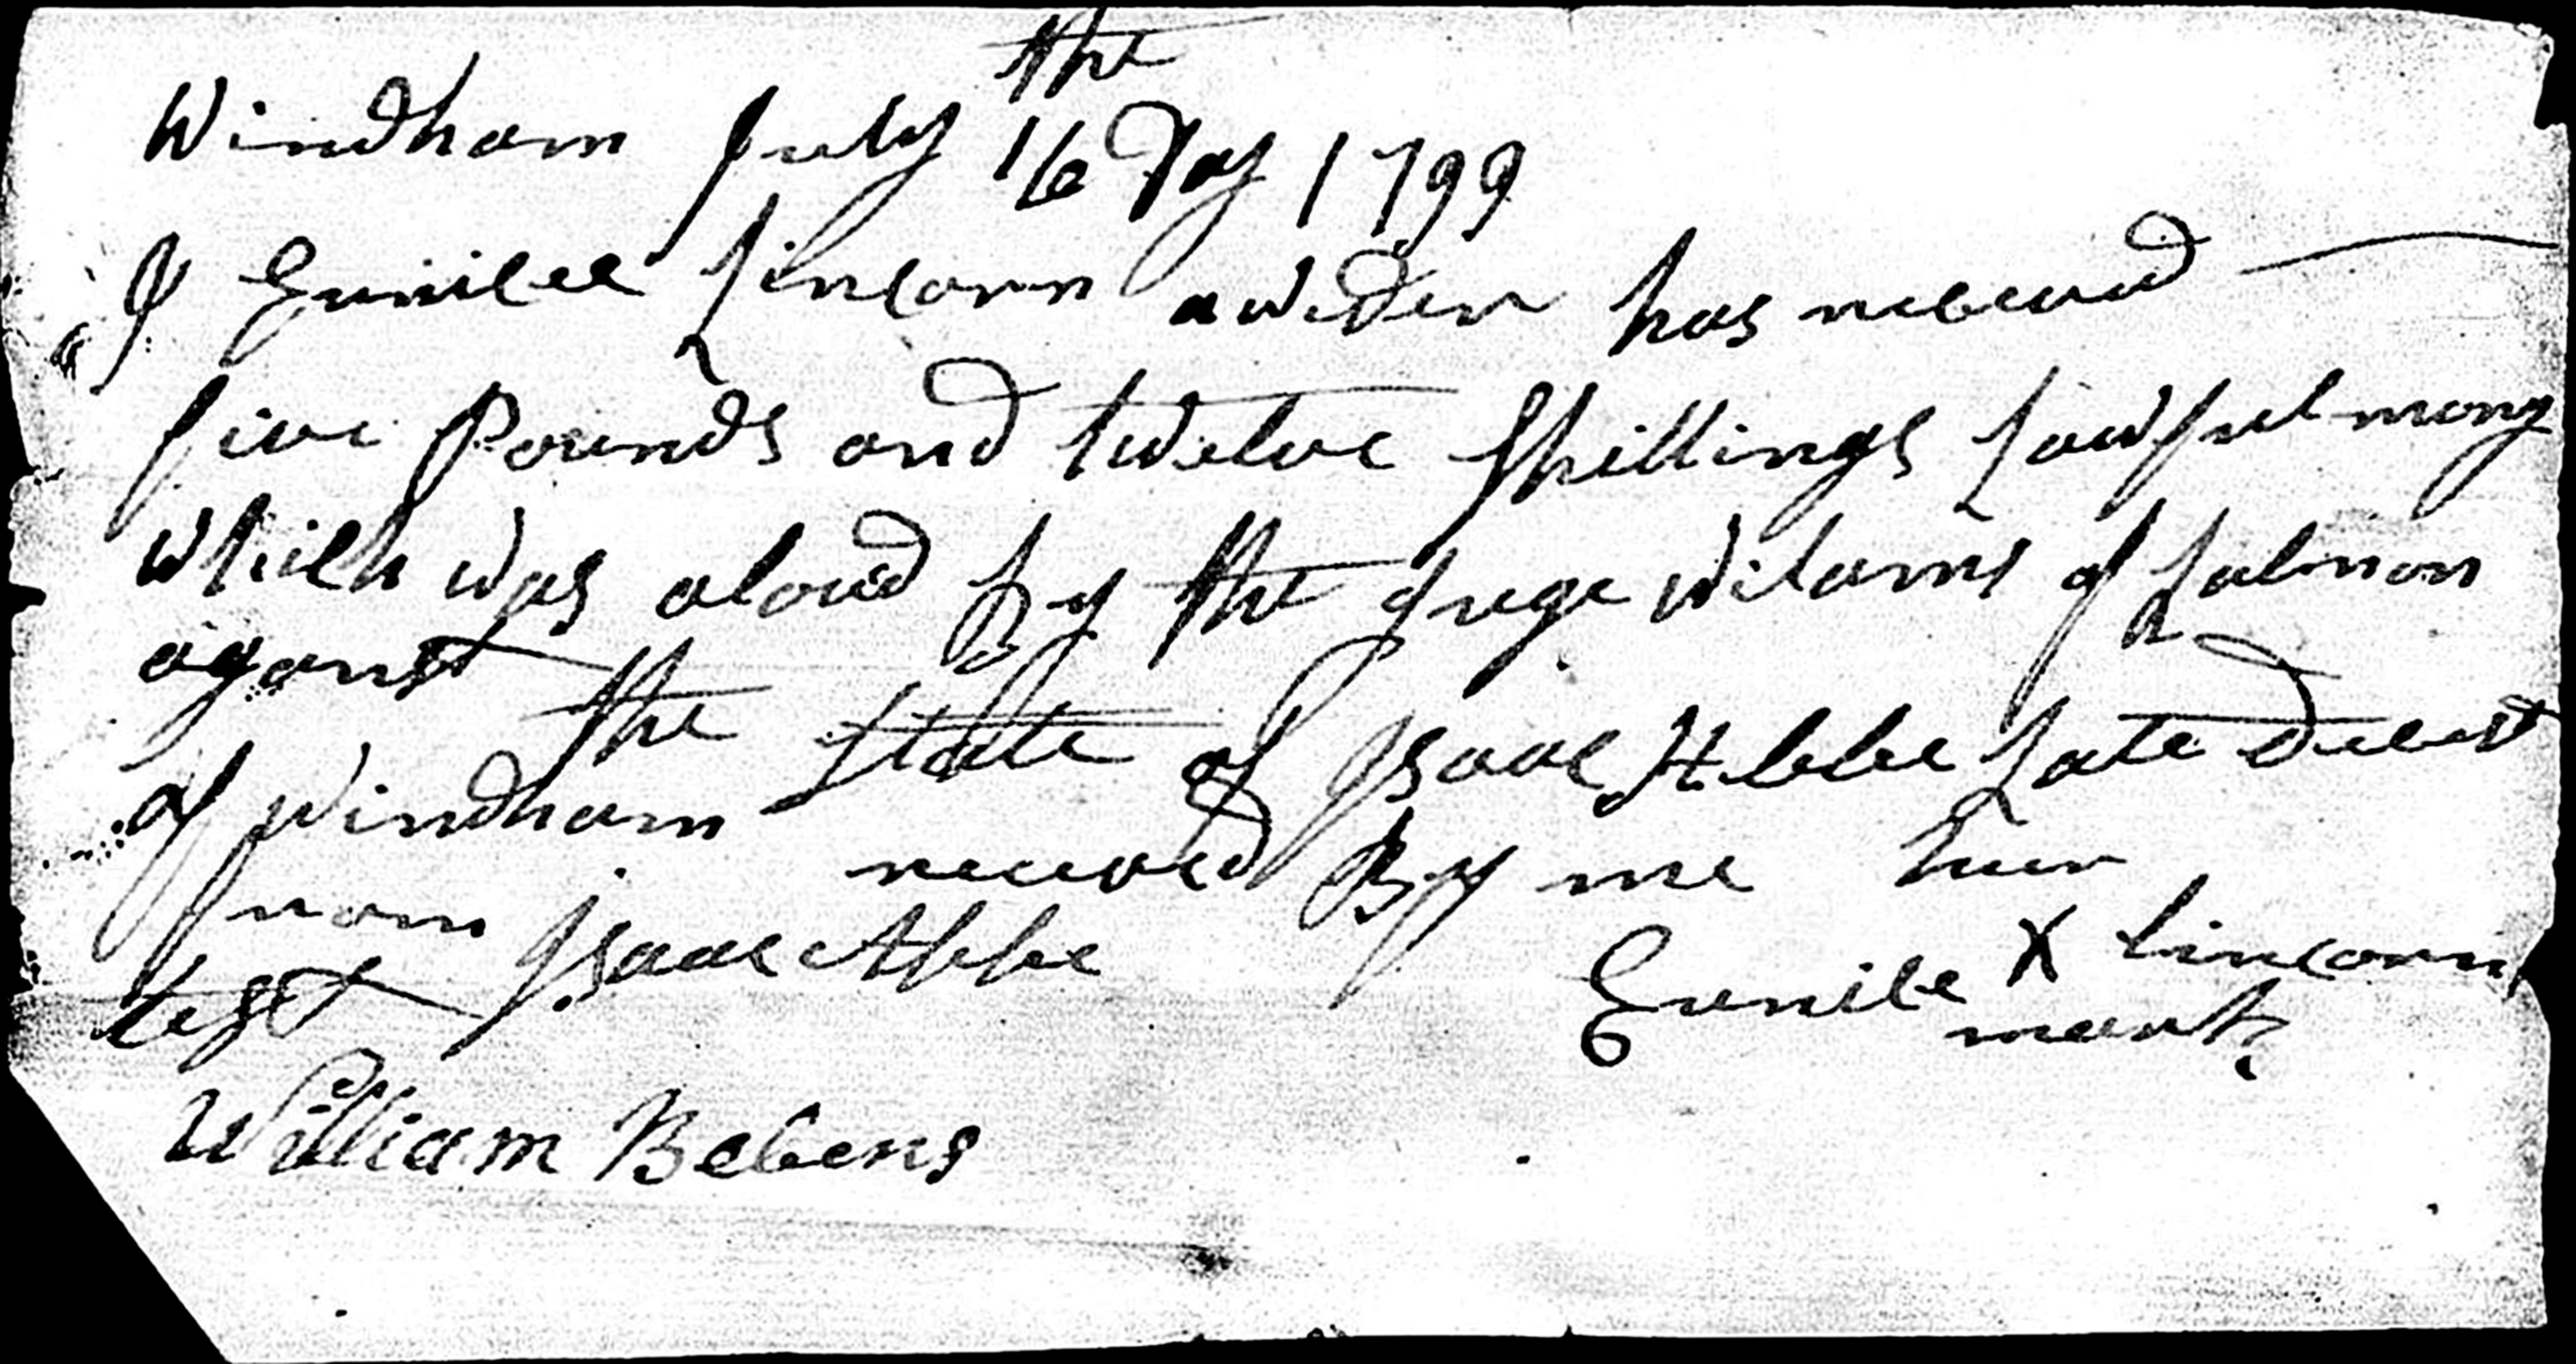 the
Windham July 16 Day 1799
I Eunicee Lincorn a wider has receved
five Pounds and twelve Shillings Lawful mony
which was aloud by the Juge Wilams of Labnon
aganst the State of Isaac Abbe Late Decest
of Windham received By me her
from Isaac Abbe Eunice X Lincorn
test mark
William Bebens